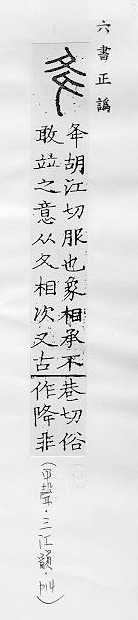 六書正譌
夅胡江切服也象相承不
敢竝之意从夂相次又古
巷切俗
作降非
(平聲·三江韻·P14)